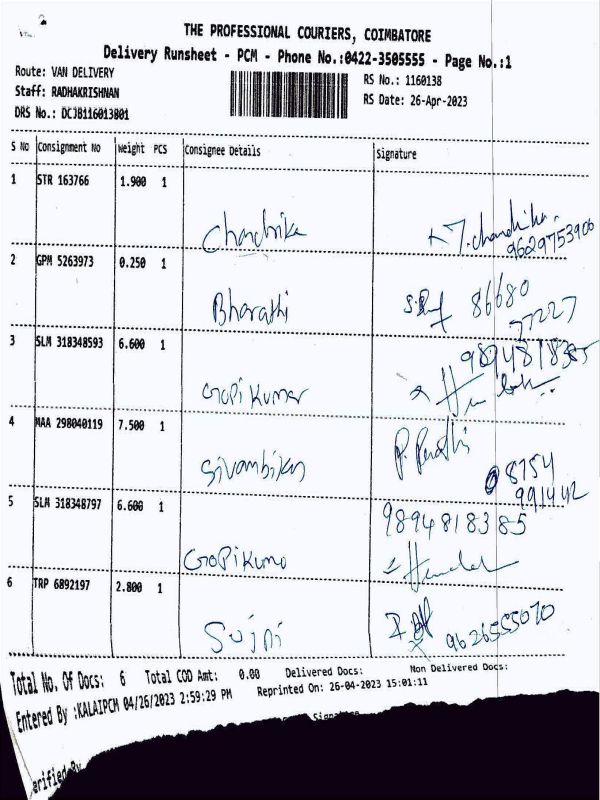 2
THE PROFESSIONAL COURIERS, COIMBATORE
Delivery Runsheet - PCM - Phone No.:0422-3505555 - Page No.:1
Route: VAN DELIVERY
RS No.: 1160138
Staff: RADHAKRISHNAN
RS Date: 26-Apr-2023
DRS No.: DCJB116013801
S No Consignment No Weight PCS Consignee Details Signature
1 STR 163766 1.900 1
Chandrika T.chandrika.
9629753906
2 GPM 5263973 0.250 1
Bharathi 86680
77227
3 SLM 318348593 6.600 1
9894818385
GoPi kumar
4 MAA 298040119 7.500 1
Sivambikas 8754
991442
5 SLM 318348797 6.600 1
9894818385
GoPikumo
6 TRP 6892197 2.800 1
Sujni 9626555070
Total No. Of Docs: 6 Total COD Amt: 0.00 Delivered Docs: Non Delivered Docs:
Entered By :KALAIPCM 04/26/2023 2:59:29 PM Reprinted On: 26-04-2023 15:01:11